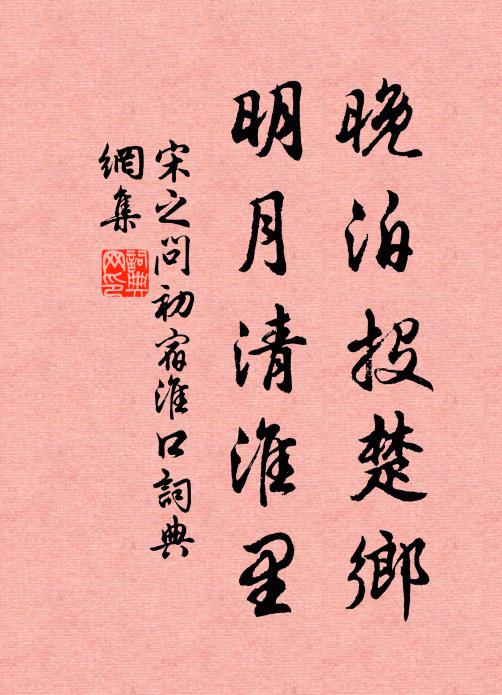 晚泊投楚鄉
明月清淮里
宋之问初宿淮口詞典
網集
詞典
网印